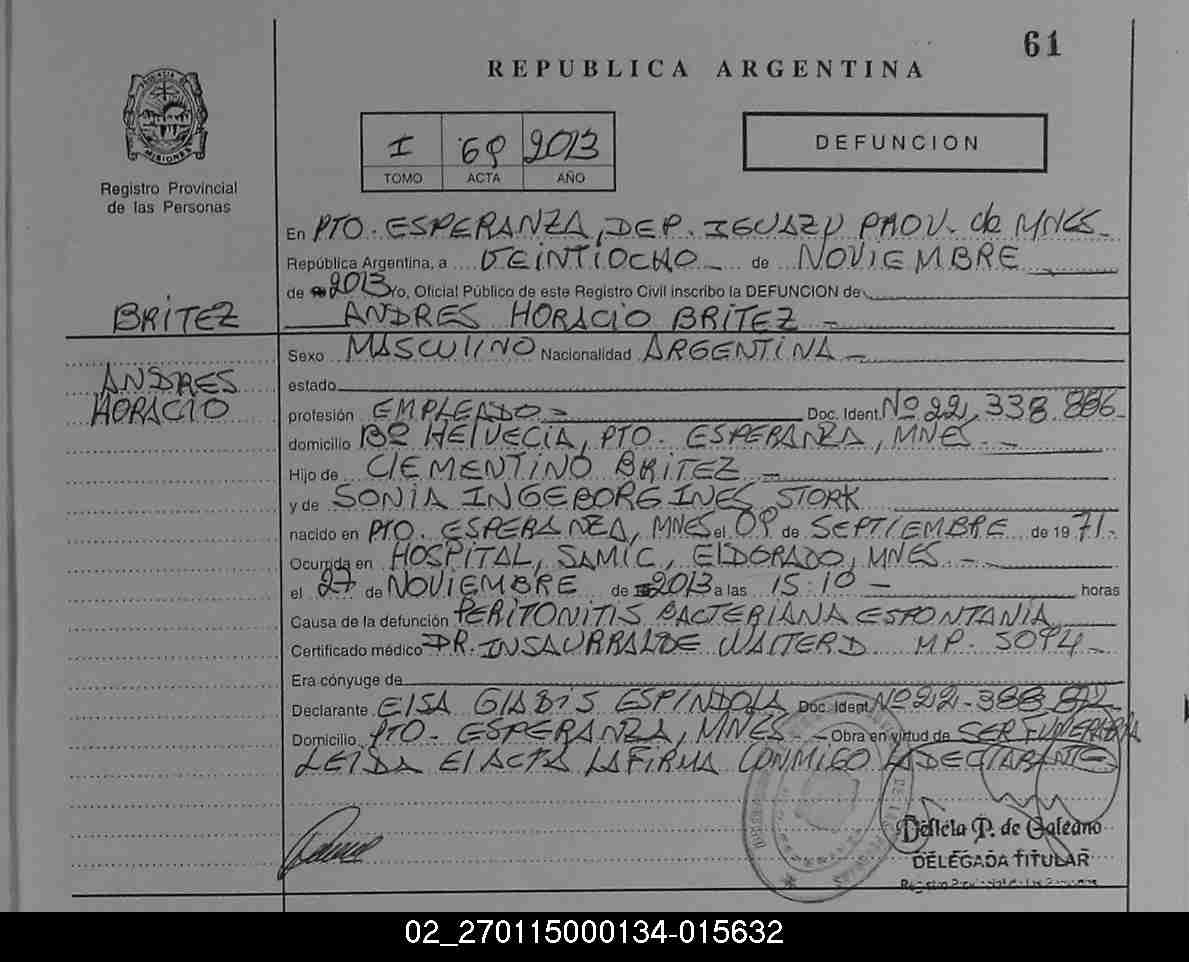 61
REPUBLICA ARGENTINA
MISIONES
Registro Provincial
de las Personas
I 69 2013
TOMO ACTA AÑO
DEFUNCION
En PTO. ESPERANZA, DEP. IGUAZU PROV. de MNES
República Argentina, a VEINTIOCHO de NOVIEMBRE
de 2013 Yo, Oficial Público de este Registro Civil inscribo la DEFUNCION de
BRITEZ
ANDRES HORACIO BRITEZ
Sexo MASCULINO Nacionalidad ARGENTINA
ANDRES
HORACIO
estado
profesión EMPLEADO Doc. Ident. Nº 22.338.886
domicilio Bº HELVECIA, PTO. ESPERANZA, MNES.
Hijo de CLEMENTINO BRITEZ
y de SONIA INGEBORG INES STORK
nacido en PTO. ESPERANZA, MNES el 09 de SEPTIEMBRE de 1971
Ocurrida en HOSPITAL, SAMIC, ELDORADO, MNES
el 27 de NOVIEMBRE de 2013 a las 15:10 horas
Causa de la defunción PERITONITIS BACTERIANA ESPONTANIA
Certificado médico DR. INSAURRALDE WALTER D. MP. 5094
Era cónyuge de
Declarante ELSA GLADIS ESPINDOLA Doc. Ident. Nº 22.388.872
Domicilio PTO. ESPERANZA, MNES Obra en virtud de SER FUNERARIA
LEIDA EL ACTA LA FIRMA CONMIGO LA DECLARANTE
P. de Galeano
DELEGADA TITULAR
02_270115000134-015632